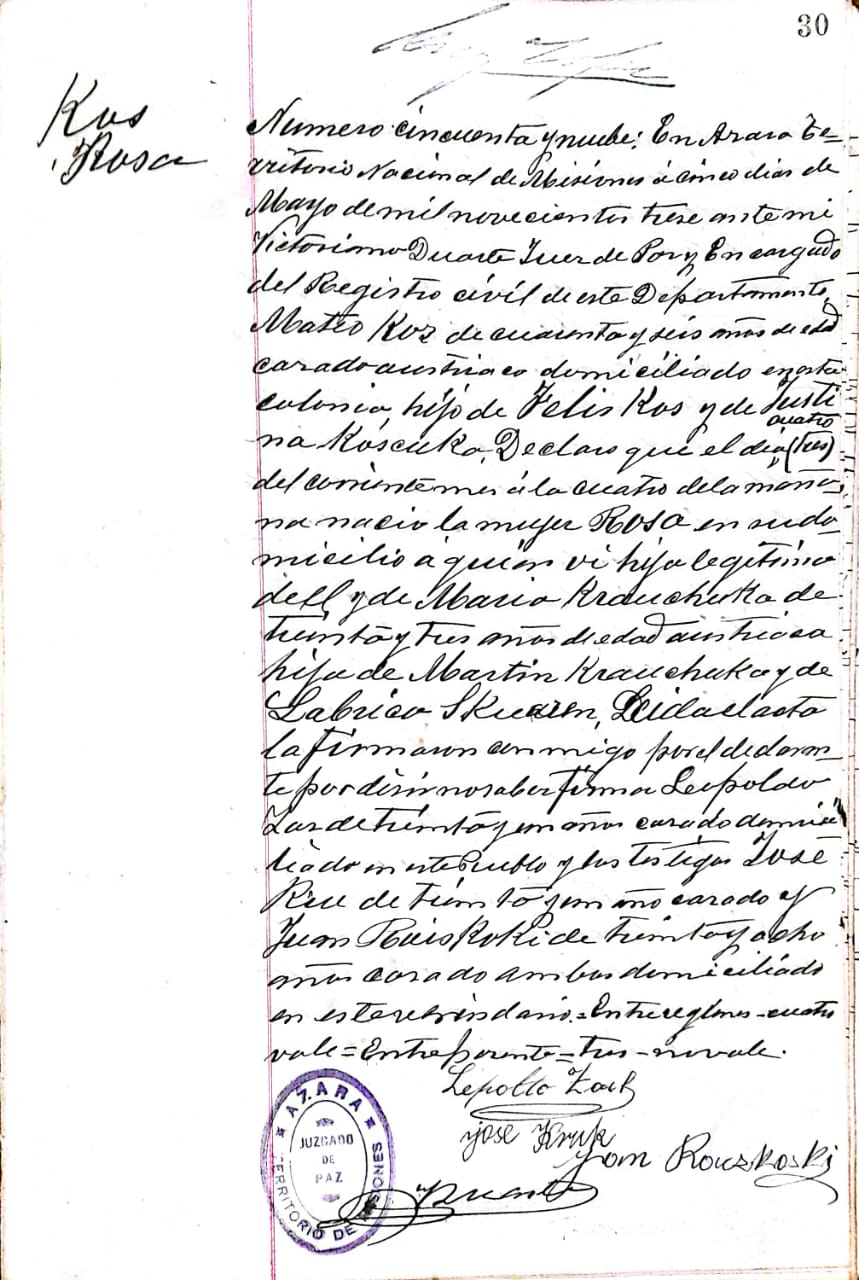 30
Kos
Rosa
Numero cincuenta y nuebe: En Azara Te=
rritorio Nacional de Misiones á cinco dias de
Mayo de mil novecientos trese ante mi
Victoriano Duarte Juez de Paz y Encargado
del Registro civil de este Departamento,
Mateo Koz de cuarenta y seis años de edad
casado austriaco domiciliado en esta
colonia, hijo de Felis Kos y de Justi
cuatro
na Koscuka, Declaro que el dia (tres)
del corriente mes á la cuatro de la maña-
na nacio la mujer Rosa en su do-
micilio á quien vi hija legitima
de él y de Maria Krauchuka de
treinta y tres años de edad austriaca
hija de Martin Krauchuka y de
Labrica Leida el acta
la firmaron conmigo por el declaran-
te por disir no saber firma Leopoldo
de treinta y un años casado domici
liado en este Pueblo y los testigos José
de treinta y un año casado y
Juan Rauskoki de treinta y ocho
años casado ambos domiciliado
en este vesindario.=Entreglones-cuatro
vale=Entreparente=tres-no vale.
José Kruk
Juan Rouzkoski
Duarte
AZARA
JUZGADO
DE
PAZ
TERRITORIO DE MISIONES